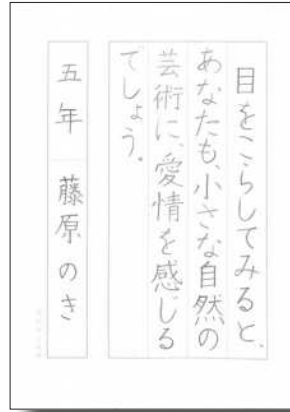 目をこらしてみると、
あなたも、小さな自然の
芸術に、愛情を感じる
でしょう。
五年 藤原のき